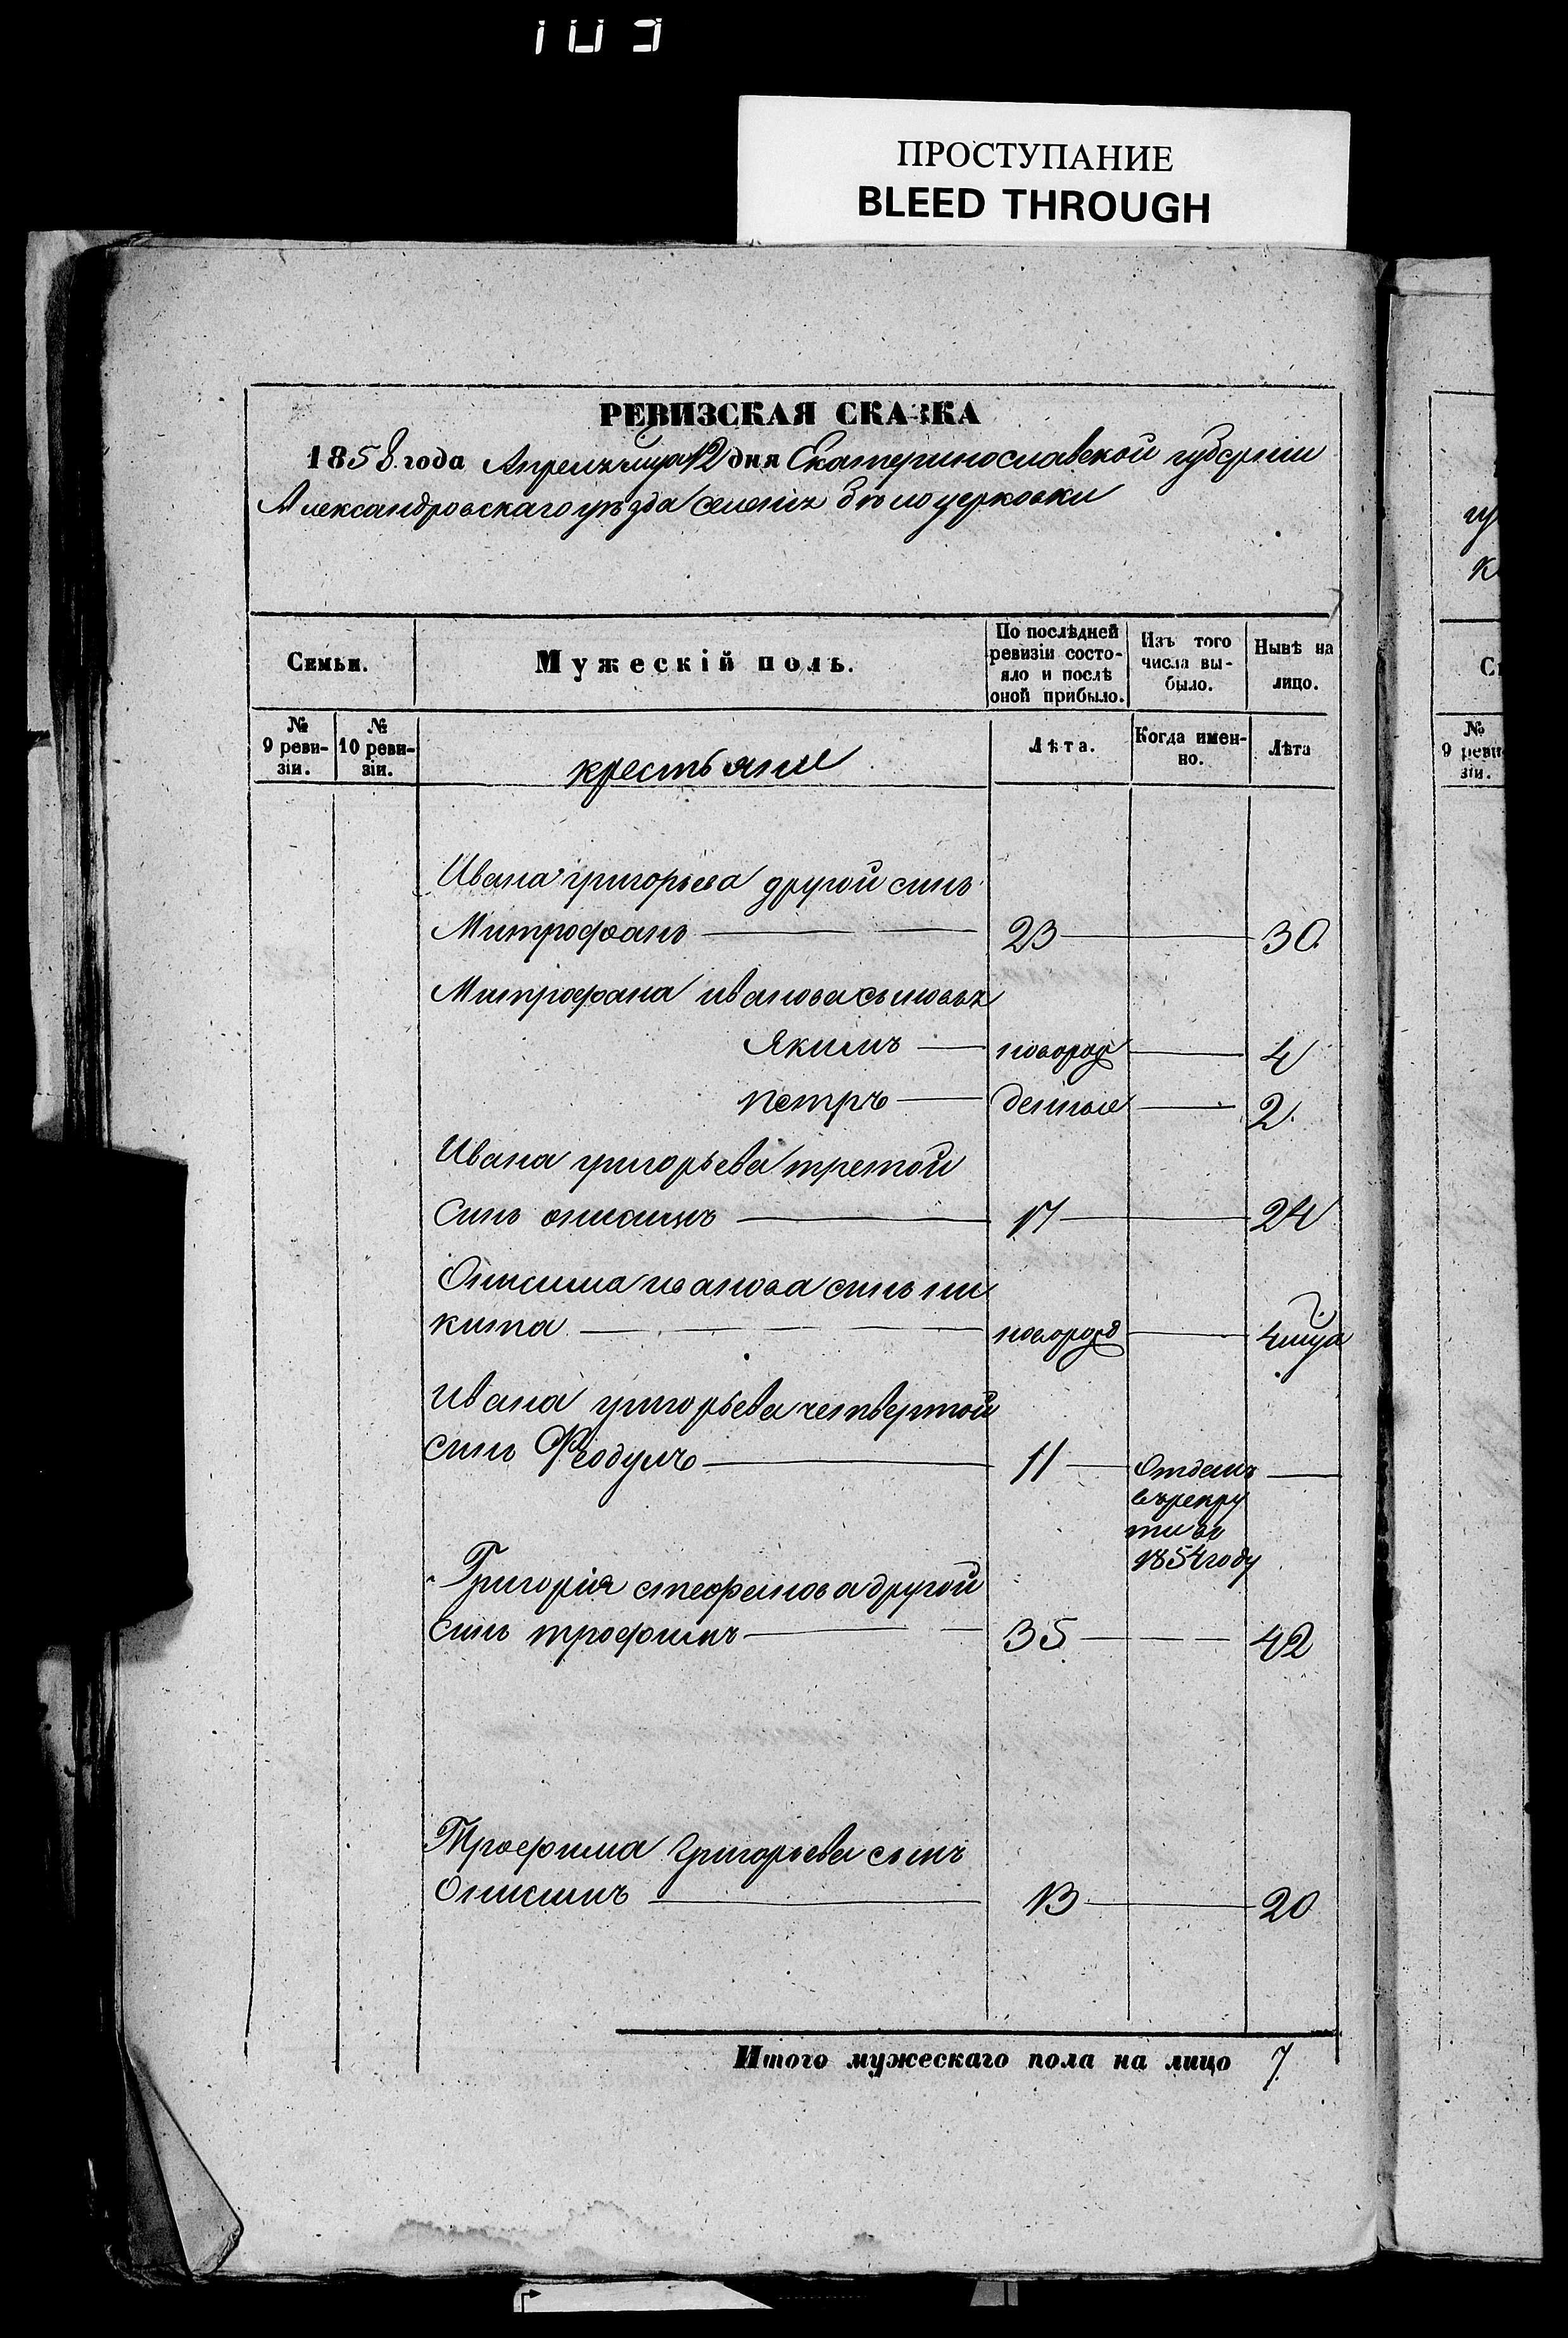 ПРОСТУПАНИЕ
BLEED THROUGH
РЕВИЗСКАЯ СКАЗКА
1858 года Апреля мца 12 дня Екатеринославской губерніи
Александровскаго уѣзда селенія Бѣлоцерковки
Семьи. Мужескій полъ. По послѣдней ревизіи состояло и послѣ оной прибыло. Изъ того числа выбыло. Нынѣ на лицо.
№ 9 ревизіи. № 10 ревизіи. крестьяне Лѣта. Когда именно. Лѣта
Ивана григорьева другой синъ
Митрофанъ 23 30
Митрофана иванова сыновья
Якимъ новорож 4
петръ денные 2
Ивана григорьева третой
синъ онисимъ 17 24
Онисима иванова синъ ни
кита новорожд 4 мца
Ивана григорьева четвертой
синъ Феодулъ 11 Отданъ
въ рекру
ти въ
1854 году
Григорія стефанова другой
синъ трофимъ 35 42
Трофима Григорьева сынъ
Онисимъ 13 20
Итого мужескаго пола на лицо 7